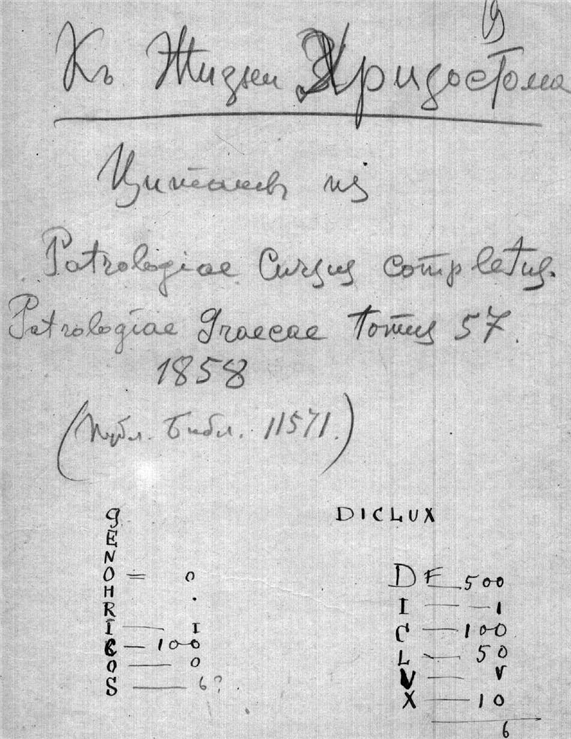 19
Къ Жизни Хризостома
Цитаты из
Patrologiae Cursus completus.
Patrologiae Graecae tomus 57.
1858
(Публ. Библ. 11571.)
DICLUX
G
E
N
O = 0
H
R .
I — I
C — 100
O — 0
S — 6?
D F — 500
I — 1
C — 100
L — 50
V — V
X — 10
6